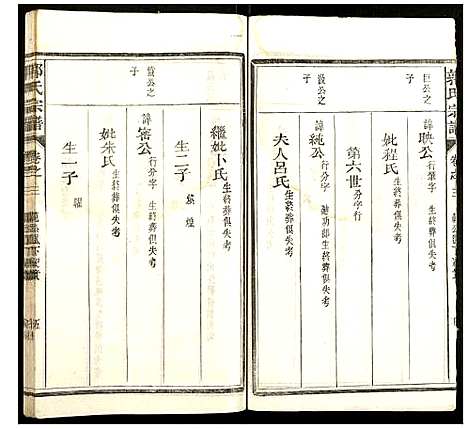 郭氏宗譜
卷之三
巨公之子
諱映公 行分字 生終葬俱失考
妣程氏 生終葬俱失考
第六世 分字行
設公之子
諱純公 行分字 迪功郎生終葬俱失考
夫人呂氏 生終葬俱失考
繼妣卜氏 生終葬俱失考
生二子 煌
公之子
諱密公 行分字 生終葬俱失考
妣朱氏 生終葬俱失考
生一子
郭氏宗譜
卷之三